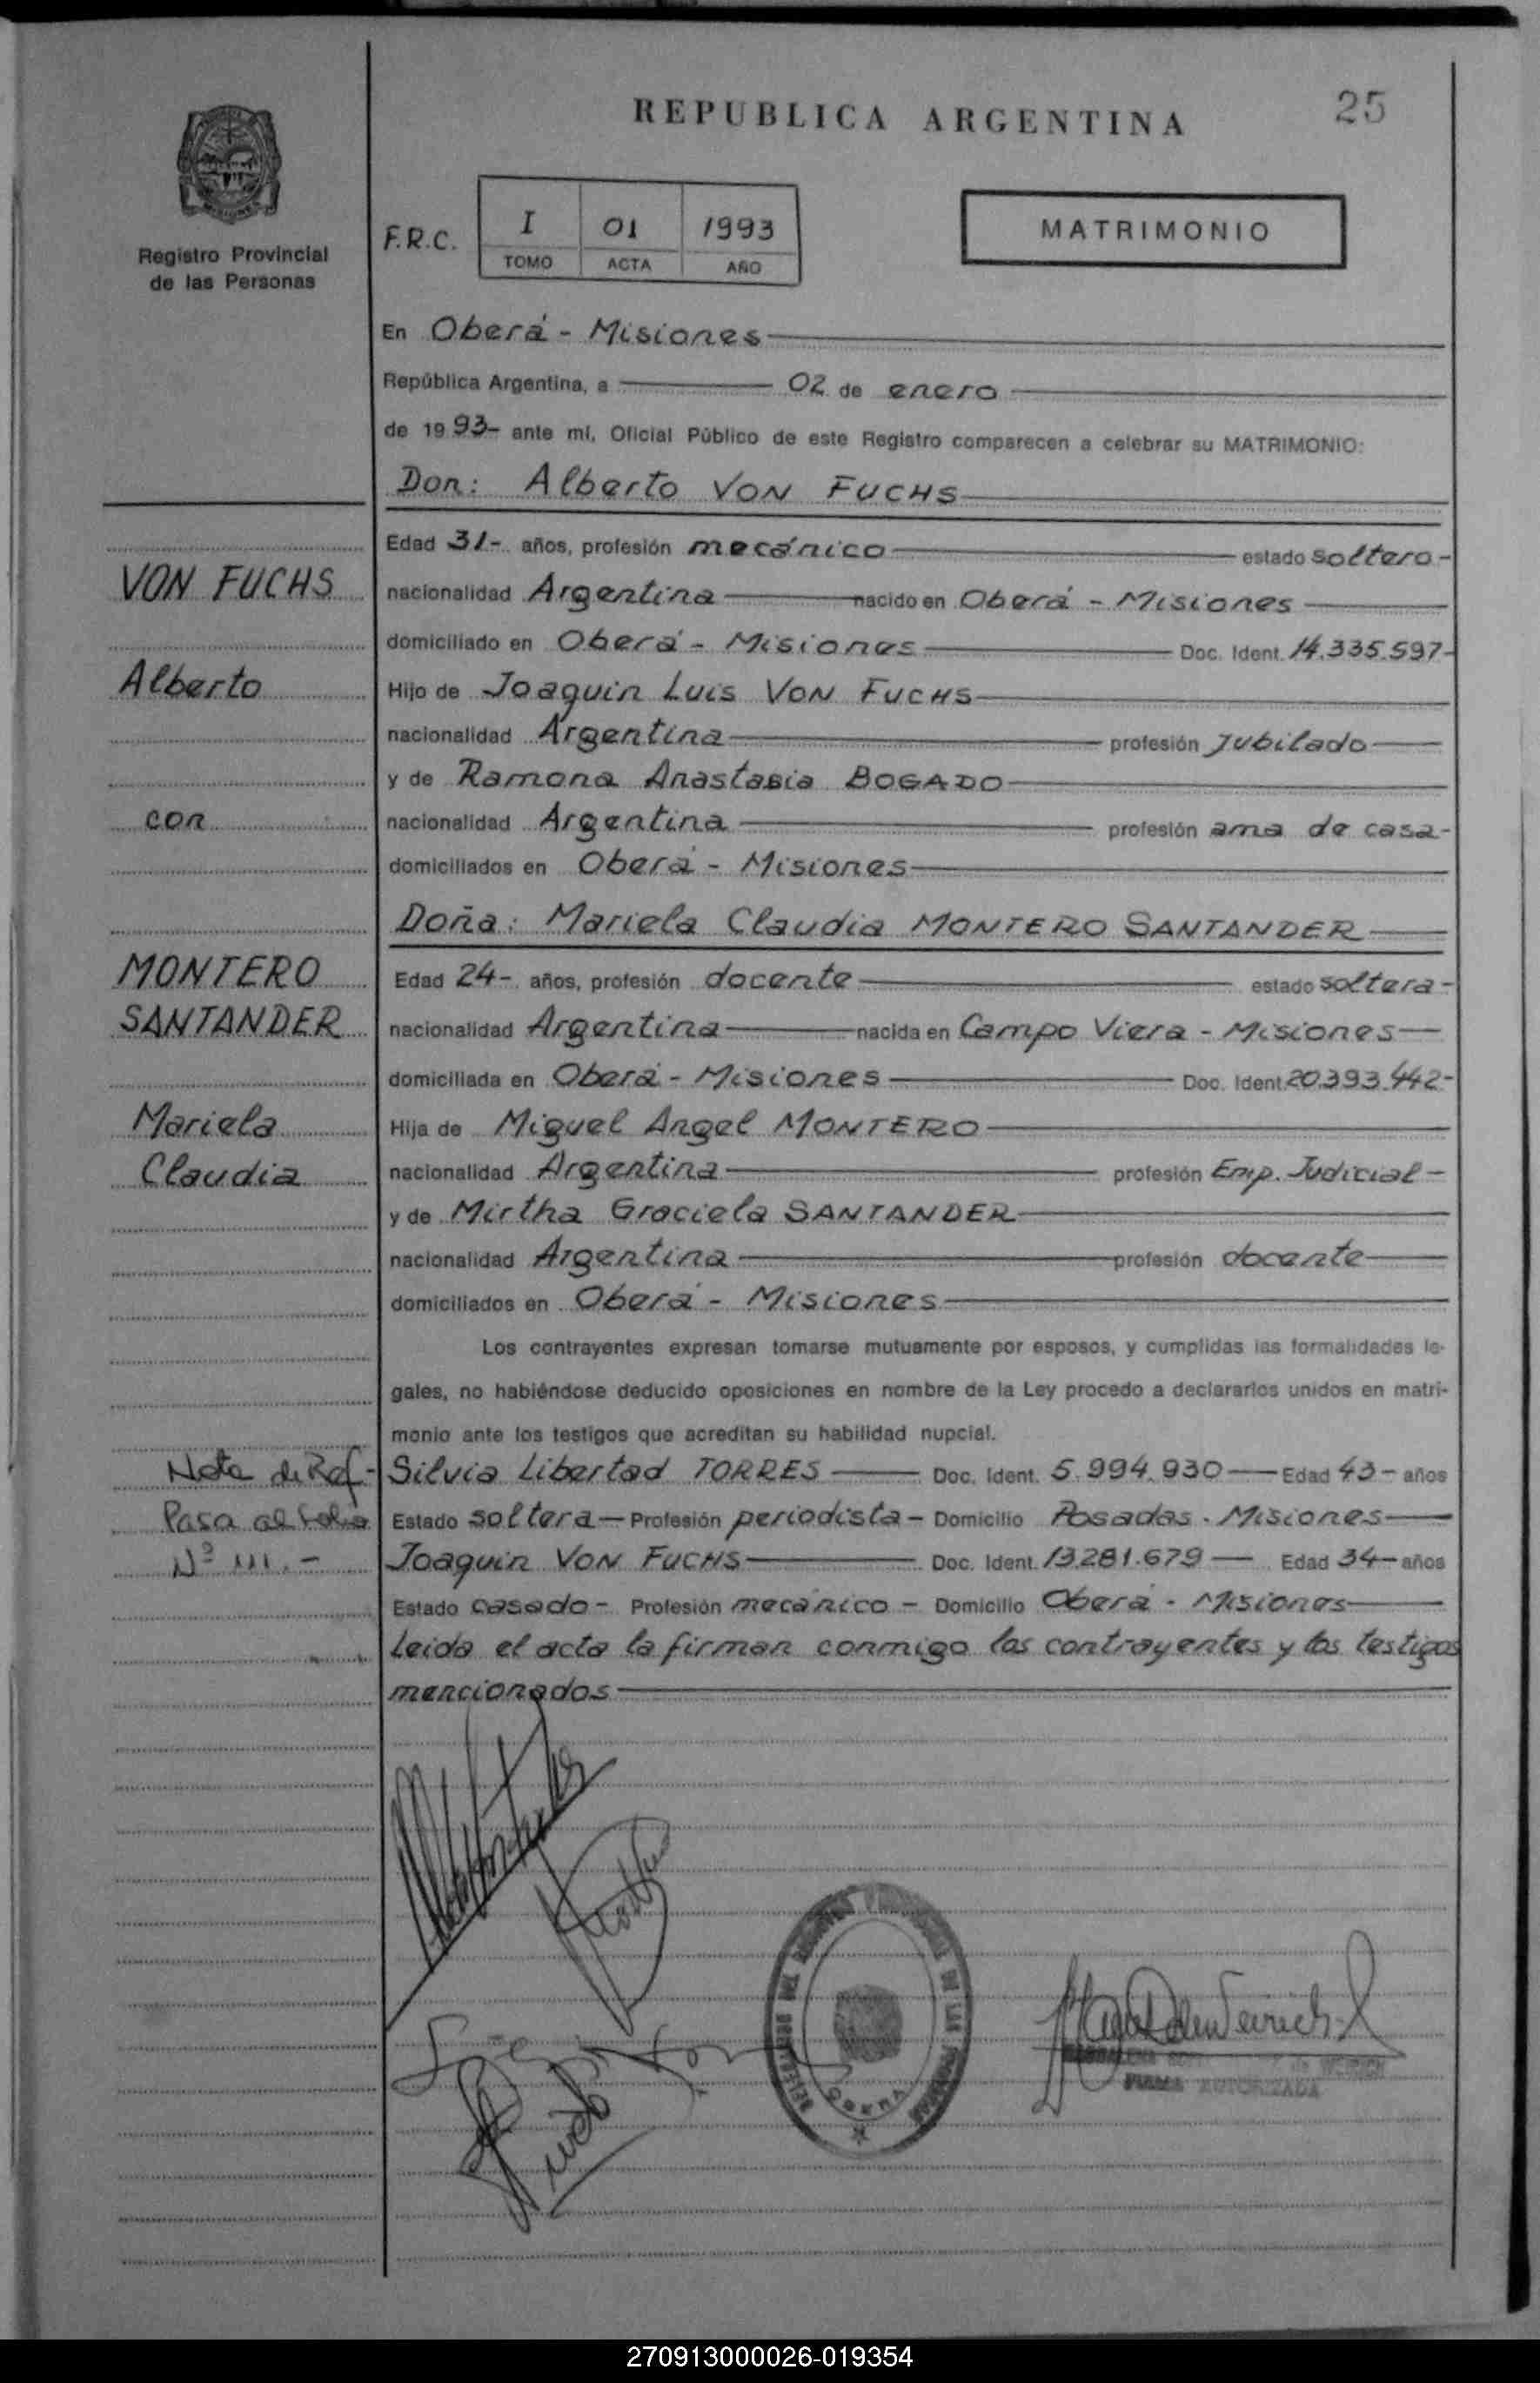 REPUBLICA ARGENTINA
25
MISIONES
Registro Provincial
de las Personas
F.R.C.
I 01 1993
TOMO ACTA AÑO
MATRIMONIO
En Oberá - Misiones
República Argentina, a 02 de enero
de 1993- ante mí, Oficial Público de este Registro comparecen a celebrar su MATRIMONIO:
Don: Alberto VON FUCHS
Edad 31- años, profesión mecánico estado soltero-
VON FUCHS
nacionalidad Argentina nacido en Oberá - Misiones
domiciliado en Oberá - Misiones Doc. Ident. 14.335.597-
Alberto
Hijo de Joaquin Luis VON FUCHS
nacionalidad Argentina profesión Jubilado
y de Ramona Anastasia BOGADO
con
nacionalidad Argentina profesión ama de casa-
domiciliados en Oberá - Misiones
Doña: Mariela Claudia MONTERO SANTANDER
MONTERO
Edad 24-. años, profesión docente estado soltera-
SANTANDER
nacionalidad Argentina nacida en Campo Viera - Misiones
domiciliada en Oberá - Misiones Doc. Ident. 20.393.442-
Mariela
Hija de Miguel Angel MONTERO
Claudia
nacionalidad Argentina profesión Emp. Judicial -
y de Mirtha Graciela SANTANDER
nacionalidad Argentina profesión docente
domiciliados en Oberá - Misiones
Los contrayentes expresan tomarse mutuamente por esposos, y cumplidas las formalidades le-
gales, no habiéndose deducido oposiciones en nombre de la Ley procedo a declararlos unidos en matri-
monio ante los testigos que acreditan su habilidad nupcial.
Nota de Ref-
Silvia Libertad TORRES Doc. Ident. 5.994.930 Edad 43- años
Pasa al Folio
Estado soltera - Profesión periodista - Domicilio Posadas - Misiones
Nº 111.-
Joaquin VON FUCHS Doc. Ident. 13.281.679 Edad 34- años
Estado casado - Profesión mecánico - Domicilio Oberá - Misiones
Leida el acta la firman conmigo los contrayentes y los testigos
mencionados
OBERA
FIRMA AUTORIZADA
270913000026-019354